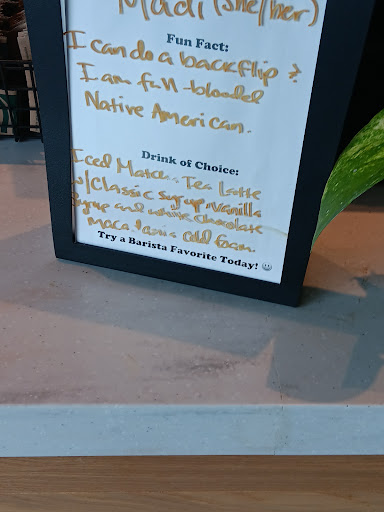 Madi (she/her)
Fun Fact:
I can do a backflip &
I am full-blooded
Native American.
Drink of Choice:
Iced Matcha Tea Latte
w/Classic syrup, Vanilla
Syrup and white chocolate
macadamia cold foam
Try a Barista Favorite Today!